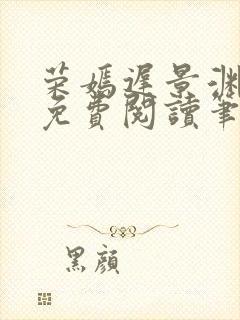 荣嫣遲景淵
免費閱讀筆
黑顔